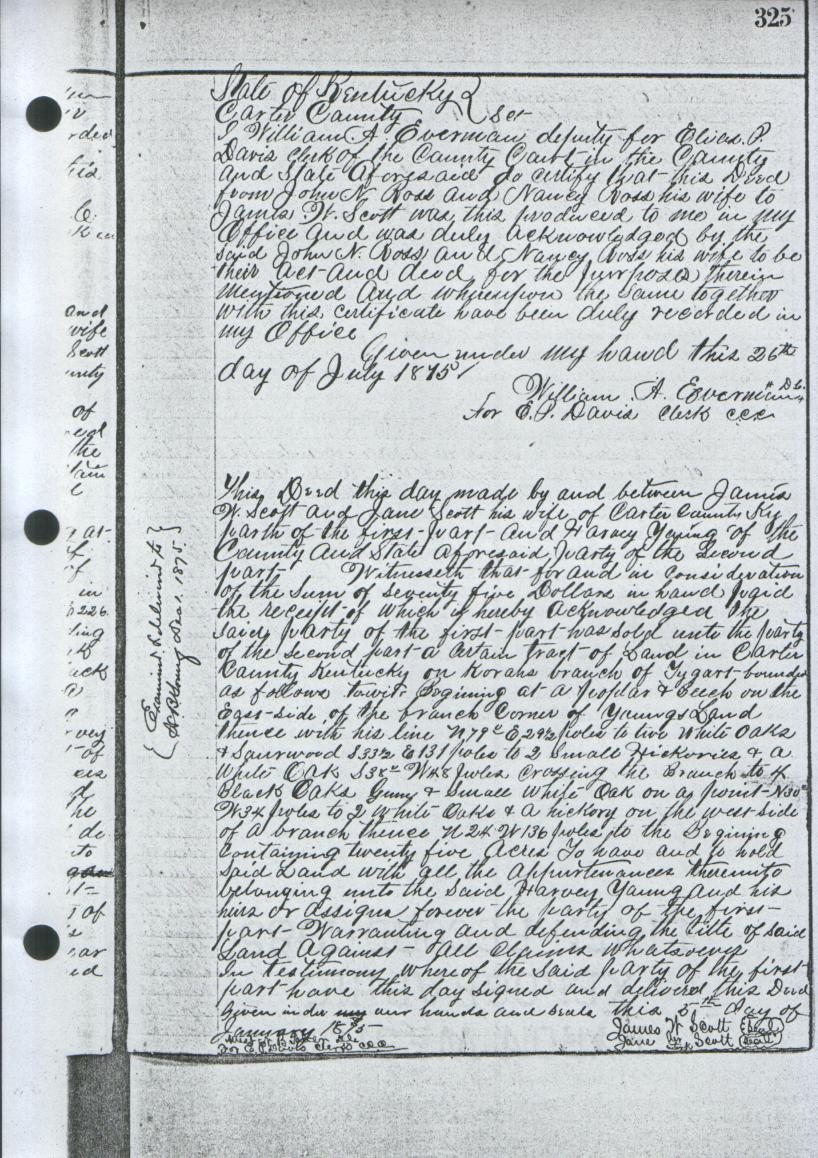 325
State of Kentucky
Carter County } Sct
I William A Everman deputy for Elias P
Davis clerk of the County Court in the County
and State Aforesaid do certify that this Deed
from John N. Ross and Nancy Ross his wife to
James W. Scott was this produced to me in my
Office and was duly acknowledged by the
said John N. Ross and Nancy Ross his wife to be
their act and deed for the purposes therein
mentioned And whereupon the same together
with this certificate have been duly recorded in
my Office
Given under my hand this 26th
day of July 1875
William A. Everman D.C.
for E.P. Davis clerk ccc
This Deed this day made by and between James
W. Scott and Jane Scott his wife of Carter County Ky
parth of the first part and Harvey Young of the
County and State aforesaid party of the second
part Witnesseth that for and in consideration
of the sum of seventy five Dollars in hand paid
the receipt of which is hereby acknowledged the
said party of the first part has sold unto the party
of the second part a certain tract of Land in Carter
County Kentucky on Korahs branch of Tygart bounded
as follows towit. Begining at a poplar & Beech on the
East side of the branch Corner of Youngs Land
thence with his line N79 E 29½ poles to two White Oaks
& Sourwood S33½ E131 poles to 2 Small Hickories & a
White Oak S38 W48 poles crossing the Branch to 4
Black Oaks Gum & Small White Oak on a point N30
W34 poles to 2 White Oaks & A hickory on the west side
of a branch thence N24 W136 poles to the Begining
Containing twenty five Acres To have and to hold
said Land with all the appurtenances thereunto
belonging unto the said Harvey Young and his
heirs or assigns forever the party of the first
part Warranting and defending the title of said
Land against all claims whatsoever
In testimony whereof the said party of the first
part have this day signed and delivered this Deed
Given under my our hands and seals this 5th day of
January 1875
James W Scott (Seal)
Jane Scott (Seal)
for E.P. Davis Clerk ccc
Examined & delivered to
Young Dec 1. 1875.